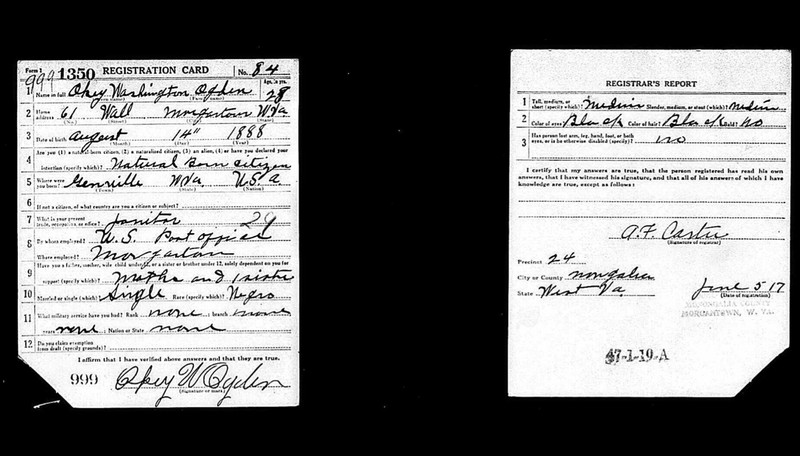 Form 1 1350 REGISTRATION CARD No. 84
999
Age, in yrs.
1 Name in full Okey Washington Ogden 28
(Given name) (Family name)
2 Home address 61 Wall Morgantown W.Va.
(No.) (Street) (City) (State)
3 Date of birth August 14" 1888
(Month) (Day) (Year)
4 Are you (1) a natural-born citizen, (2) a naturalized citizen, (3) an alien, (4) or have you declared your
intention (specify which)? Natural Born Citizen
5 Where were you born? W.Va. U.S.A.
(Town) (State) (Nation)
6 If not a citizen, of what country are you a citizen or subject?
7 What is your present trade, occupation, or office? Janitor 29
8 By whom employed? U.S. Post office
Where employed?
9 Have you a father, mother, wife, child under 12, or a sister or brother under 12, solely dependent on you for
support (specify which)? Mother and 1 sister
10 Married or single (which)? Single Race (specify which)? Negro
11 What military service have you had? Rank none ; branch none
years none ; Nation or State none
12 Do you claim exemption
from draft (specify grounds)?
I affirm that I have verified above answers and that they are true.
999 Okey W Ogden
(Signature or mark)
REGISTRAR'S REPORT
1 Tall, medium, or short (specify which)? Medium Slender, medium, or stout (which)? medium
2 Color of eyes? Black Color of hair? Black Bald? no
3 Has person lost arm, leg, hand, foot, or both
eyes, or is he otherwise disabled (specify)? no
I certify that my answers are true, that the person registered has read his own
answers, that I have witnessed his signature, and that all of his answers of which I have
knowledge are true, except as follows:
A.F.
(Signature of registrar)
Precinct 24
City or County
State West Va. June 5 17
(Date of registration)
MONONGALIA COUNTY
MORGANTOWN, W. VA.
47-1-19-A